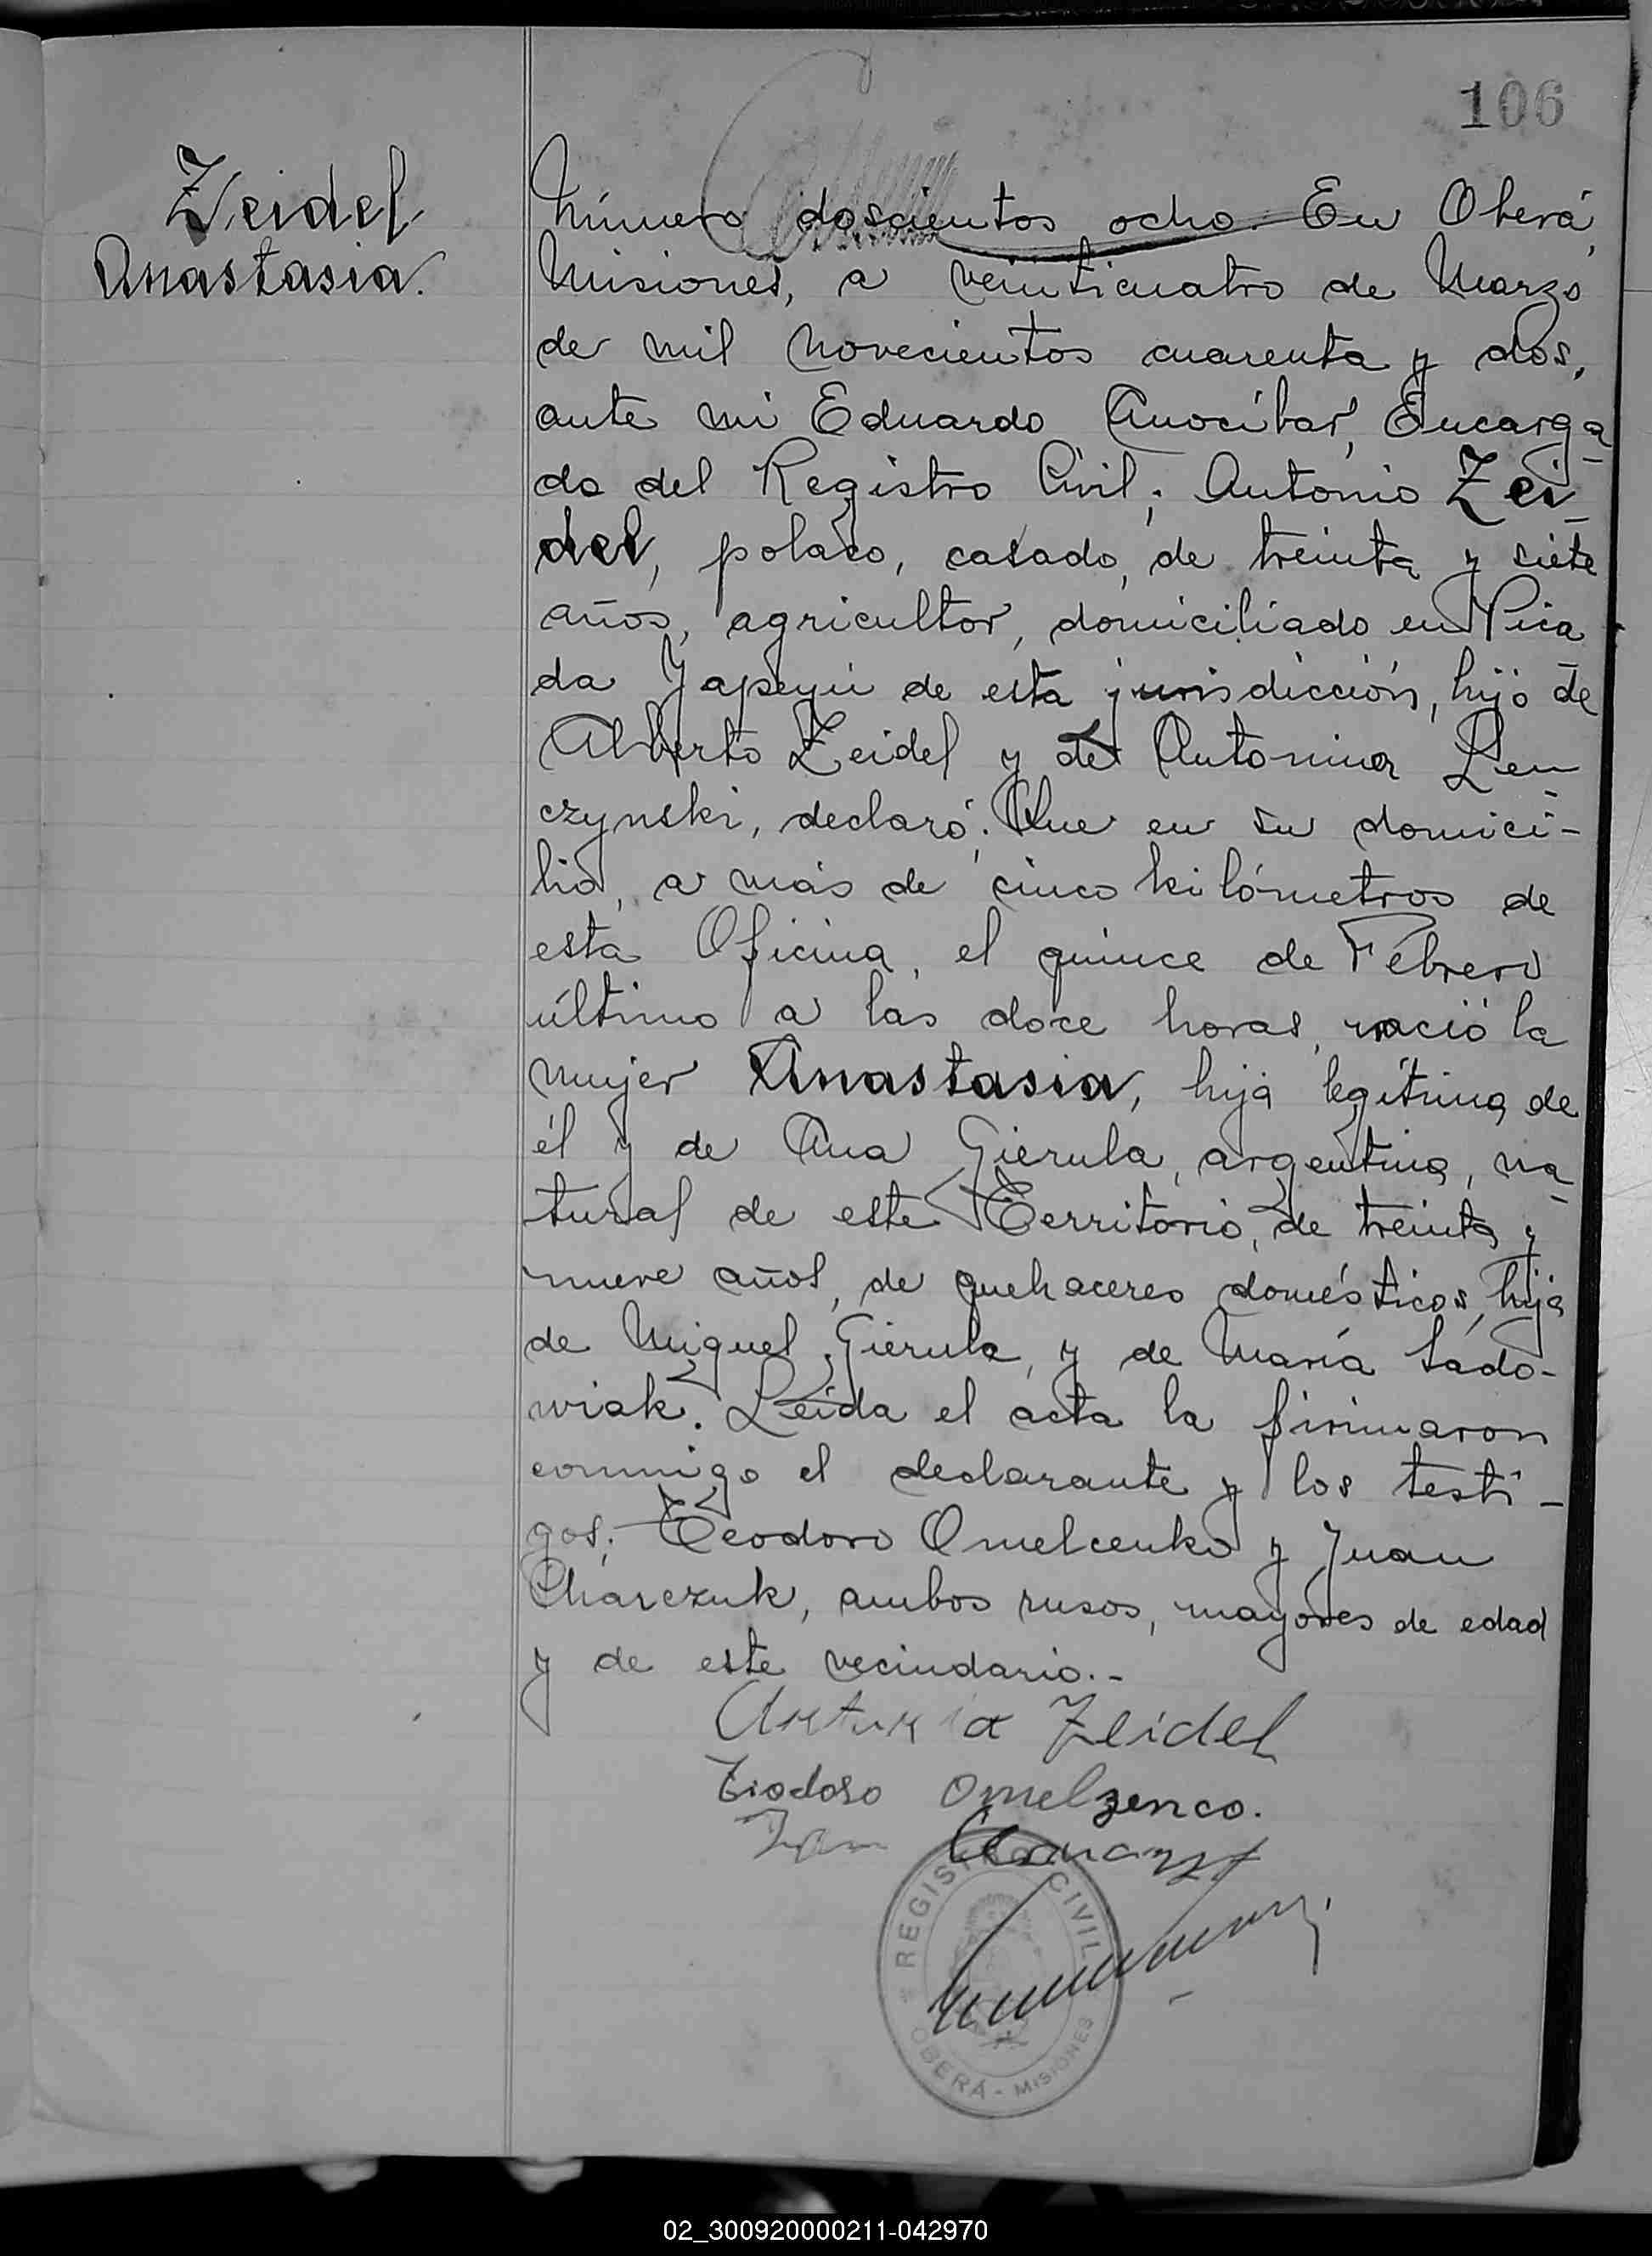 106
Zeidel
Anastasia.
Número doscientos ocho. En Oberá,
Misiones, a veinticuatro de Marzo
de mil novecientos cuarenta y dos,
ante mi Eduardo Anocíbar, Encarga-
do del Registro Civil; Antonio Zei-
del, polaco, casado, de treinta y siete
años, agricultor, domiciliado en Pica-
da Yapeyú de esta jurisdicción, hijo de
Alberto Zeidel y de Antonina Len-
czynski, declaró: Que en su domici-
lio, a más de cinco kilómetros de
esta Oficina, el quince de Febrero
último a las doce horas, nació la
mujer Anastasia, hija legítima de
él y de Ana Gierula, argentina, na-
tural de este Territorio, de treinta y
nueve años, de quehaceres domésticos, hija
de Miguel Gierula, y de María Sado-
wiak. Leída el acta la firmaron
conmigo el declarante y los testi-
gos: Teodoro Omelcenko y Juan
Charczuk, ambos rusos, mayores de edad
y de este vecindario.-
Zeidel
Teodoro Omelzenco.
REGISTRO CIVIL
OBERÁ - MISIONES
02_300920000211-042970